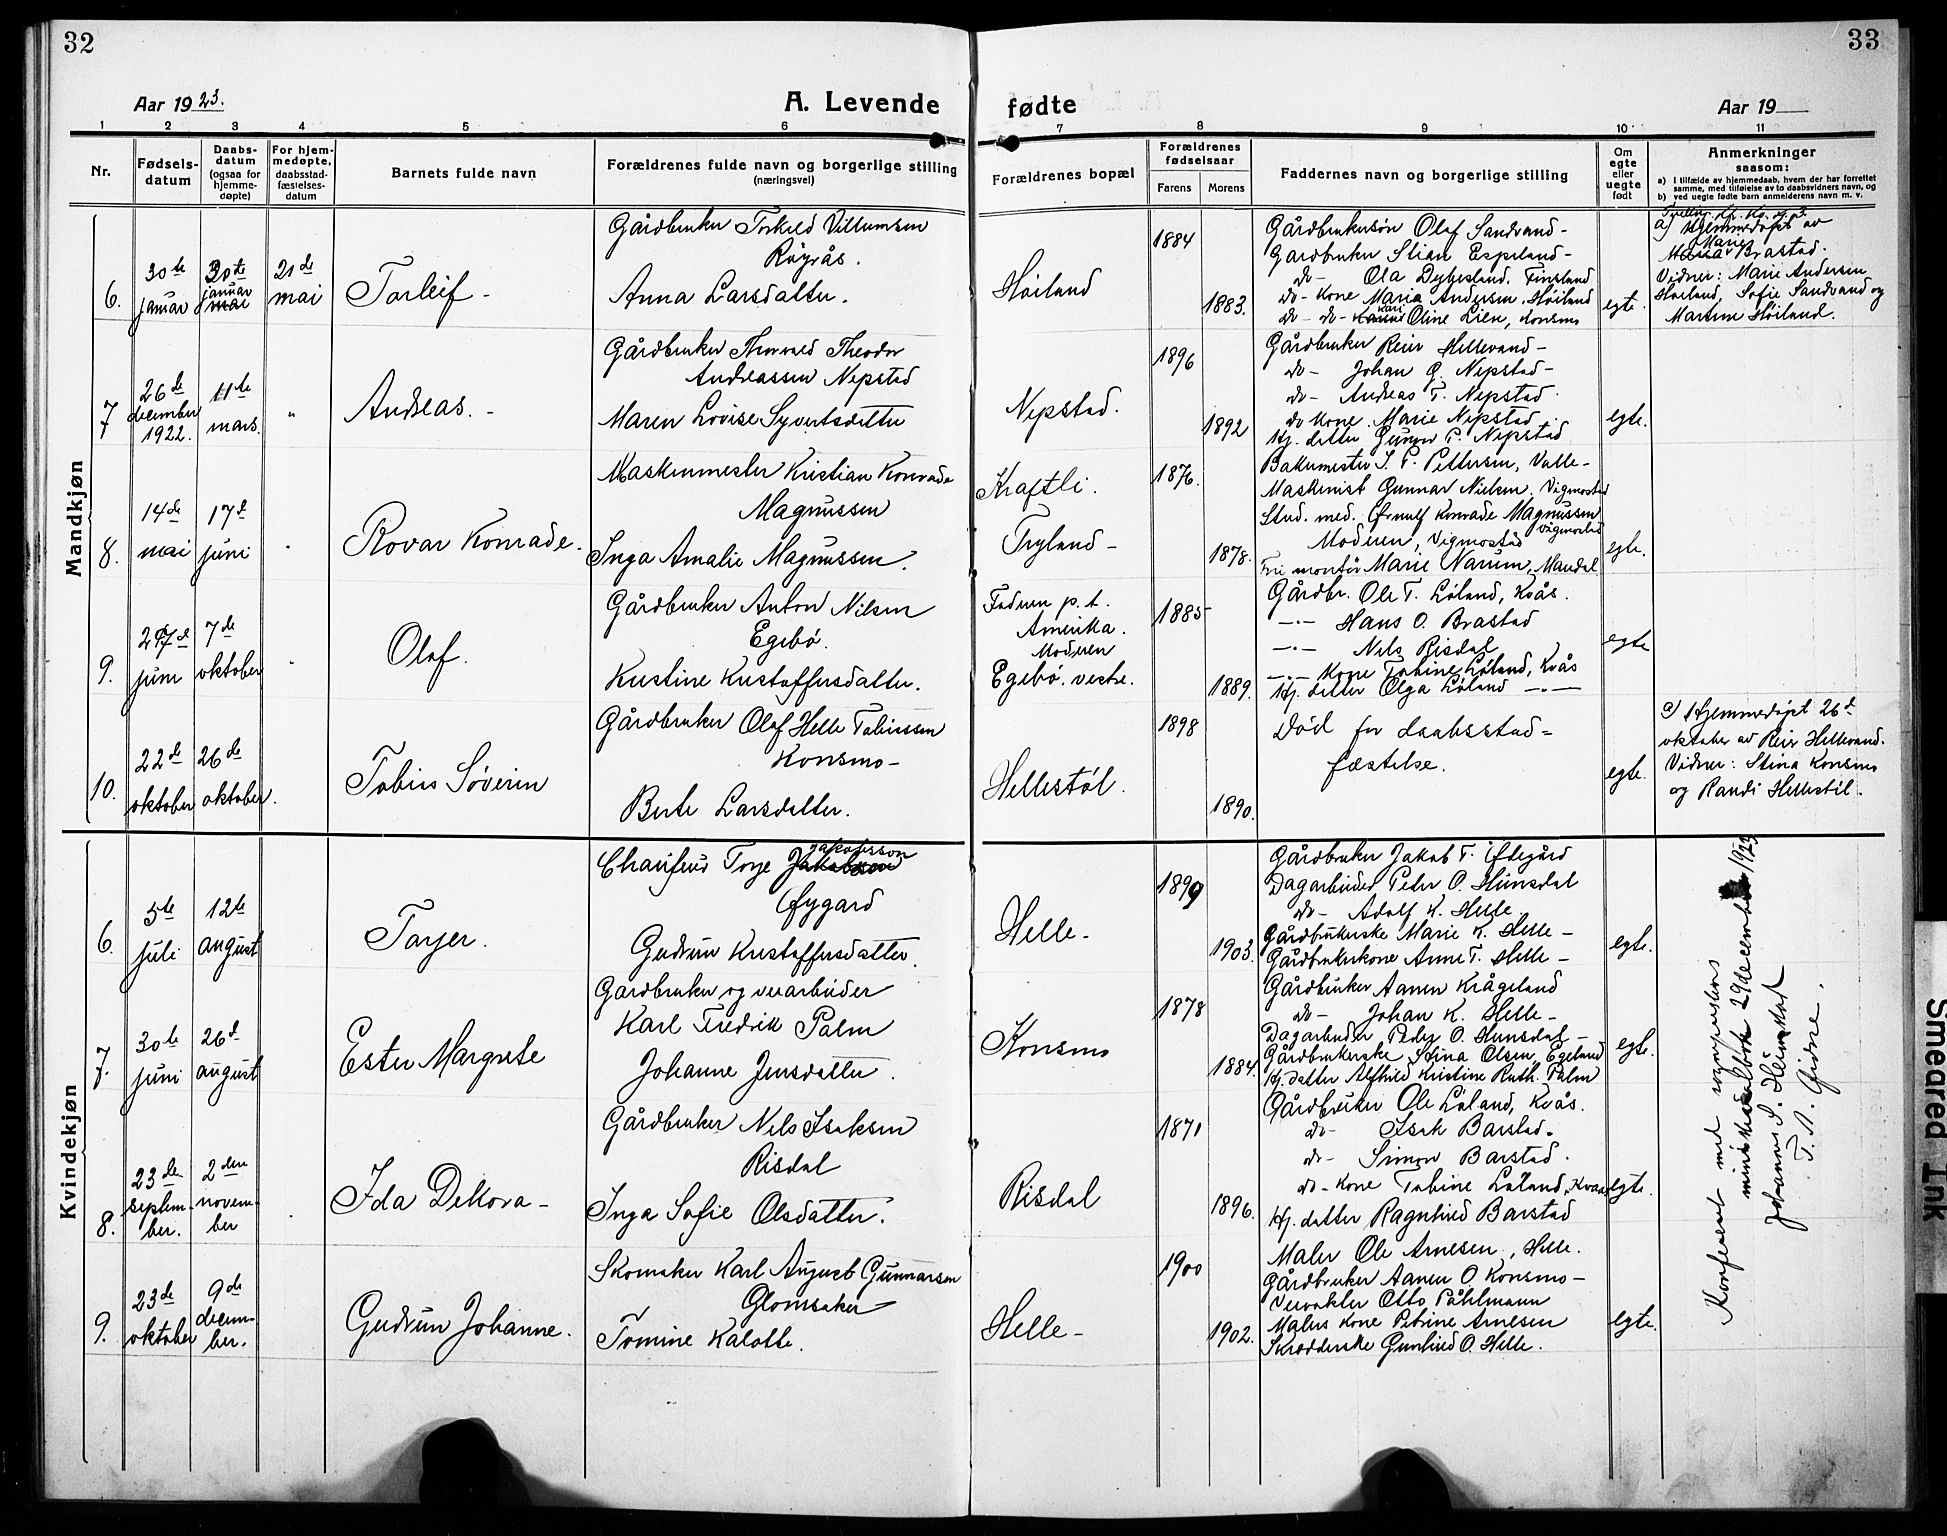 32
33
Aar 1923.
A. Levende
fødte
Aar 19
1 2 3 4 5 6 7 8 9 10 11
Nr.
Fødsels-
datum
Daabs-
datum
(ogsaa for
hjemme-
døpte)
For hjem-
medøpte,
daabsstad-
fæstelses-
datum
Barnets fulde navn
Forældrenes fulde navn og borgerlige stilling
(næringsvei)
Forældrenes bopæl
Forældrenes
fødselsaar
Farens
Morens
Faddernes navn og borgerlige stilling
Om
egte
eller
uegte
født
Anmerkninger
saasom:
a) i tilfælde av hjemmedaab, hvem der har forrettet
samme, med tilføielse av to daabsvidners navn, og
b) ved uegte fødte barn anmelderens navn m. v.
Mandkjøn
6.
30te
januar
30te
januar
mai
21de
mai
Torleif -
Gårdbruker Torkeld Villumsen
Røyrås.
Anna Larsdatter.
Høiland
1884
1883.
Gårdbrukersøn Olaf Sandvand -
Gårdbruker Stian Espeland -
do - Ola Dybesland. Finsland
do - kone Maria Andersen, Høiland
do - do - Karine Kari Oline Lien, Konsmo
egte.
a) Hjemmedøpt av
Maria Marie Brastad.
Vidner: Marie Andersen
Høiland, Sofie Sandvand og
Martine Høiland.
7
26de
december
1922.
11te
mars.
"
Andreas. -
Gårdbruker Thorvald Theodor
Andreassen Nepstad
Maren Lovise Syvertsdatter
Nepstad.
1896
1892
Gårdbruker Reier Hellevand -
do - Johan G. Nepstad -
do - Andreas T. Nepstad.
do kone. Marie Nepstad.
Hj. datter Gunvor T. Nepstad
egte.
8.
14de
mai
17de
juni
Rovar Konrade.
Maskinmester Kristian Konrade
Magnussen
Inga Amalie Magnussen.
Kraftli.
Tryland -
1876.
1878.
Bakermester J. P. Pettersen, Valle -
Maskinist Gunnar Nielsen, Vigmostad
Stud. med. Ørnulf Konrade Magnussen
Vigmostad
Moderen, Vigmostad
Marie Narum, Mandal.
egte.
9.
27de
juni
7de
oktober
Olaf.
Gårdbruker Anton Nilsen
Egebø.
Kristine Kristoffersdatter.
Faderen p. t.
Amerika.
Moderen
Egebø. vestre.
1885
1889.
Gårdbr. Ole T. Løland, Kvås.
-"- Hans O. Brastad
-"- Nils Risdal
-"- kone Tobine Løland, Kvås
Hj. datter Olga Løland -"-
egte
10.
22de
oktober
26de
oktober.
Tobias Søverin
Gårdbruker Olaf Helle Tobiassen
Konsmo -
Berte Larsdatter.
Hellestøl.
1898
1890.
Død før daabsstad=
fæstelse.
egte.
a) Hjemmedøpt 26de
oktober av Reier Hellevand.
Vidner: Stina Konsmo
og Randi Hellestøl.
Kvindekjøn
6.
5te
juli
12te
august
Torjer.
Jakobsson
Chauffeur Torje Jakobsen
Øygard
Gudrun Kristoffersdatter.
Helle -
1899
1903.
Gårdbruker Jakob T. Øfegård
Dagarbeider Peder O. Hunsdal
do - Adolf K. Helle.
Gårdbrukerske Marie K. Helle -
Gårdbrukerkone Anne T. Helle -
egte.
7.
30te
juni
26de
august
Ester Margrete
Gårdbruker og veiarbeider
Karl Fredrik Palm
Johanne Jensdatter.
Konsmo
1878
1884.
Gårdbruker Aanen Krågeland
do - Johan K. Helle -
Dagarbeider Peder O. Hunsdal -
Gårdbrukerske Stina Olsen Egeland
Hj. datter Alfhild Kristine Ruth. Palm
egte.
8.
23de
septem-
ber.
2den
novem-
ber
Ida Debora -
Gårdbruker Nils Isaksen
Risdal
Inga Sofie Olsdatter.
Risdal
1871
1896.
Gårdbruker Ole Løland, Kvås.
do - Isak Barstad.
do - Simon Barstad.
do - kone Tobine Løland, Kvaas
Hj. datter Ragnhild Barstad
egte.
9.
23de
oktober
9de
decem-
ber.
Gudrun Johanne.
Skomaker Karl August Gunnarsen
Glomsaker
Tomine Kalotte.
Helle -
1900
1902.
Maler Ole Arnesen, Helle.
Gårdbruker Aanen O Konsmo -
Veivokter Otto Påhlmann
Malers kone Petrine Arnesen
Skrædderske Gunhild O. Helle.
egte.
Konferert med sogneprestens
ministerialbok 29 december 1923
Johannes S. Heimstad